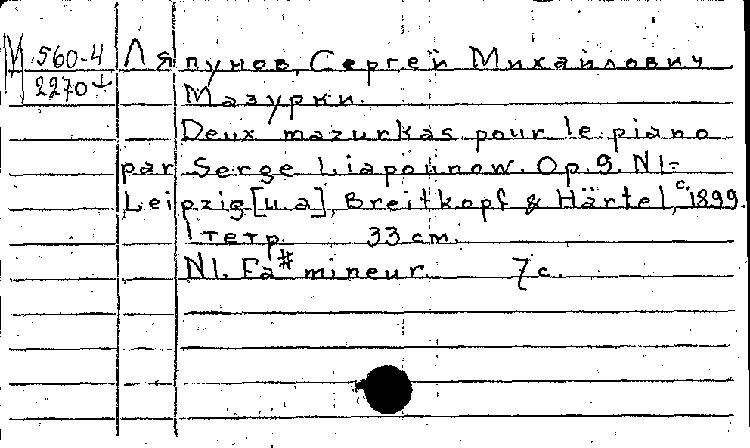 М 560-4 Ляпунов, Сергей Михайлович
2270 Мазурки.
Deux mazurkas pour le piano
par Serge Liapounow. Op. 9. N1-
Leipzig [u.a], Breitkopf & Härtel, c. 1899.
1 тетр. 33 cm.
N1. Fa# mineur. 7 с.